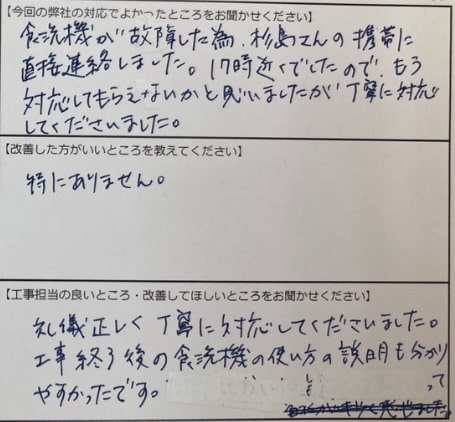 【今回の弊社の対応でよかったところをお聞かせください】
食洗機が故障した為、杉島さんの携帯に
直接連絡しました。17時近くでしたので、もう
対応してもらえないかと思いましたが丁寧に対応
してくださいました。
【改善した方がいいところを教えてください】
特にありません。
【工事担当の良いところ・改善してほしいところをお聞かせください】
礼儀正しく丁寧に対応してくださいました。
工事終了後の食洗機の使い方の説明も分かり
やすかったです。